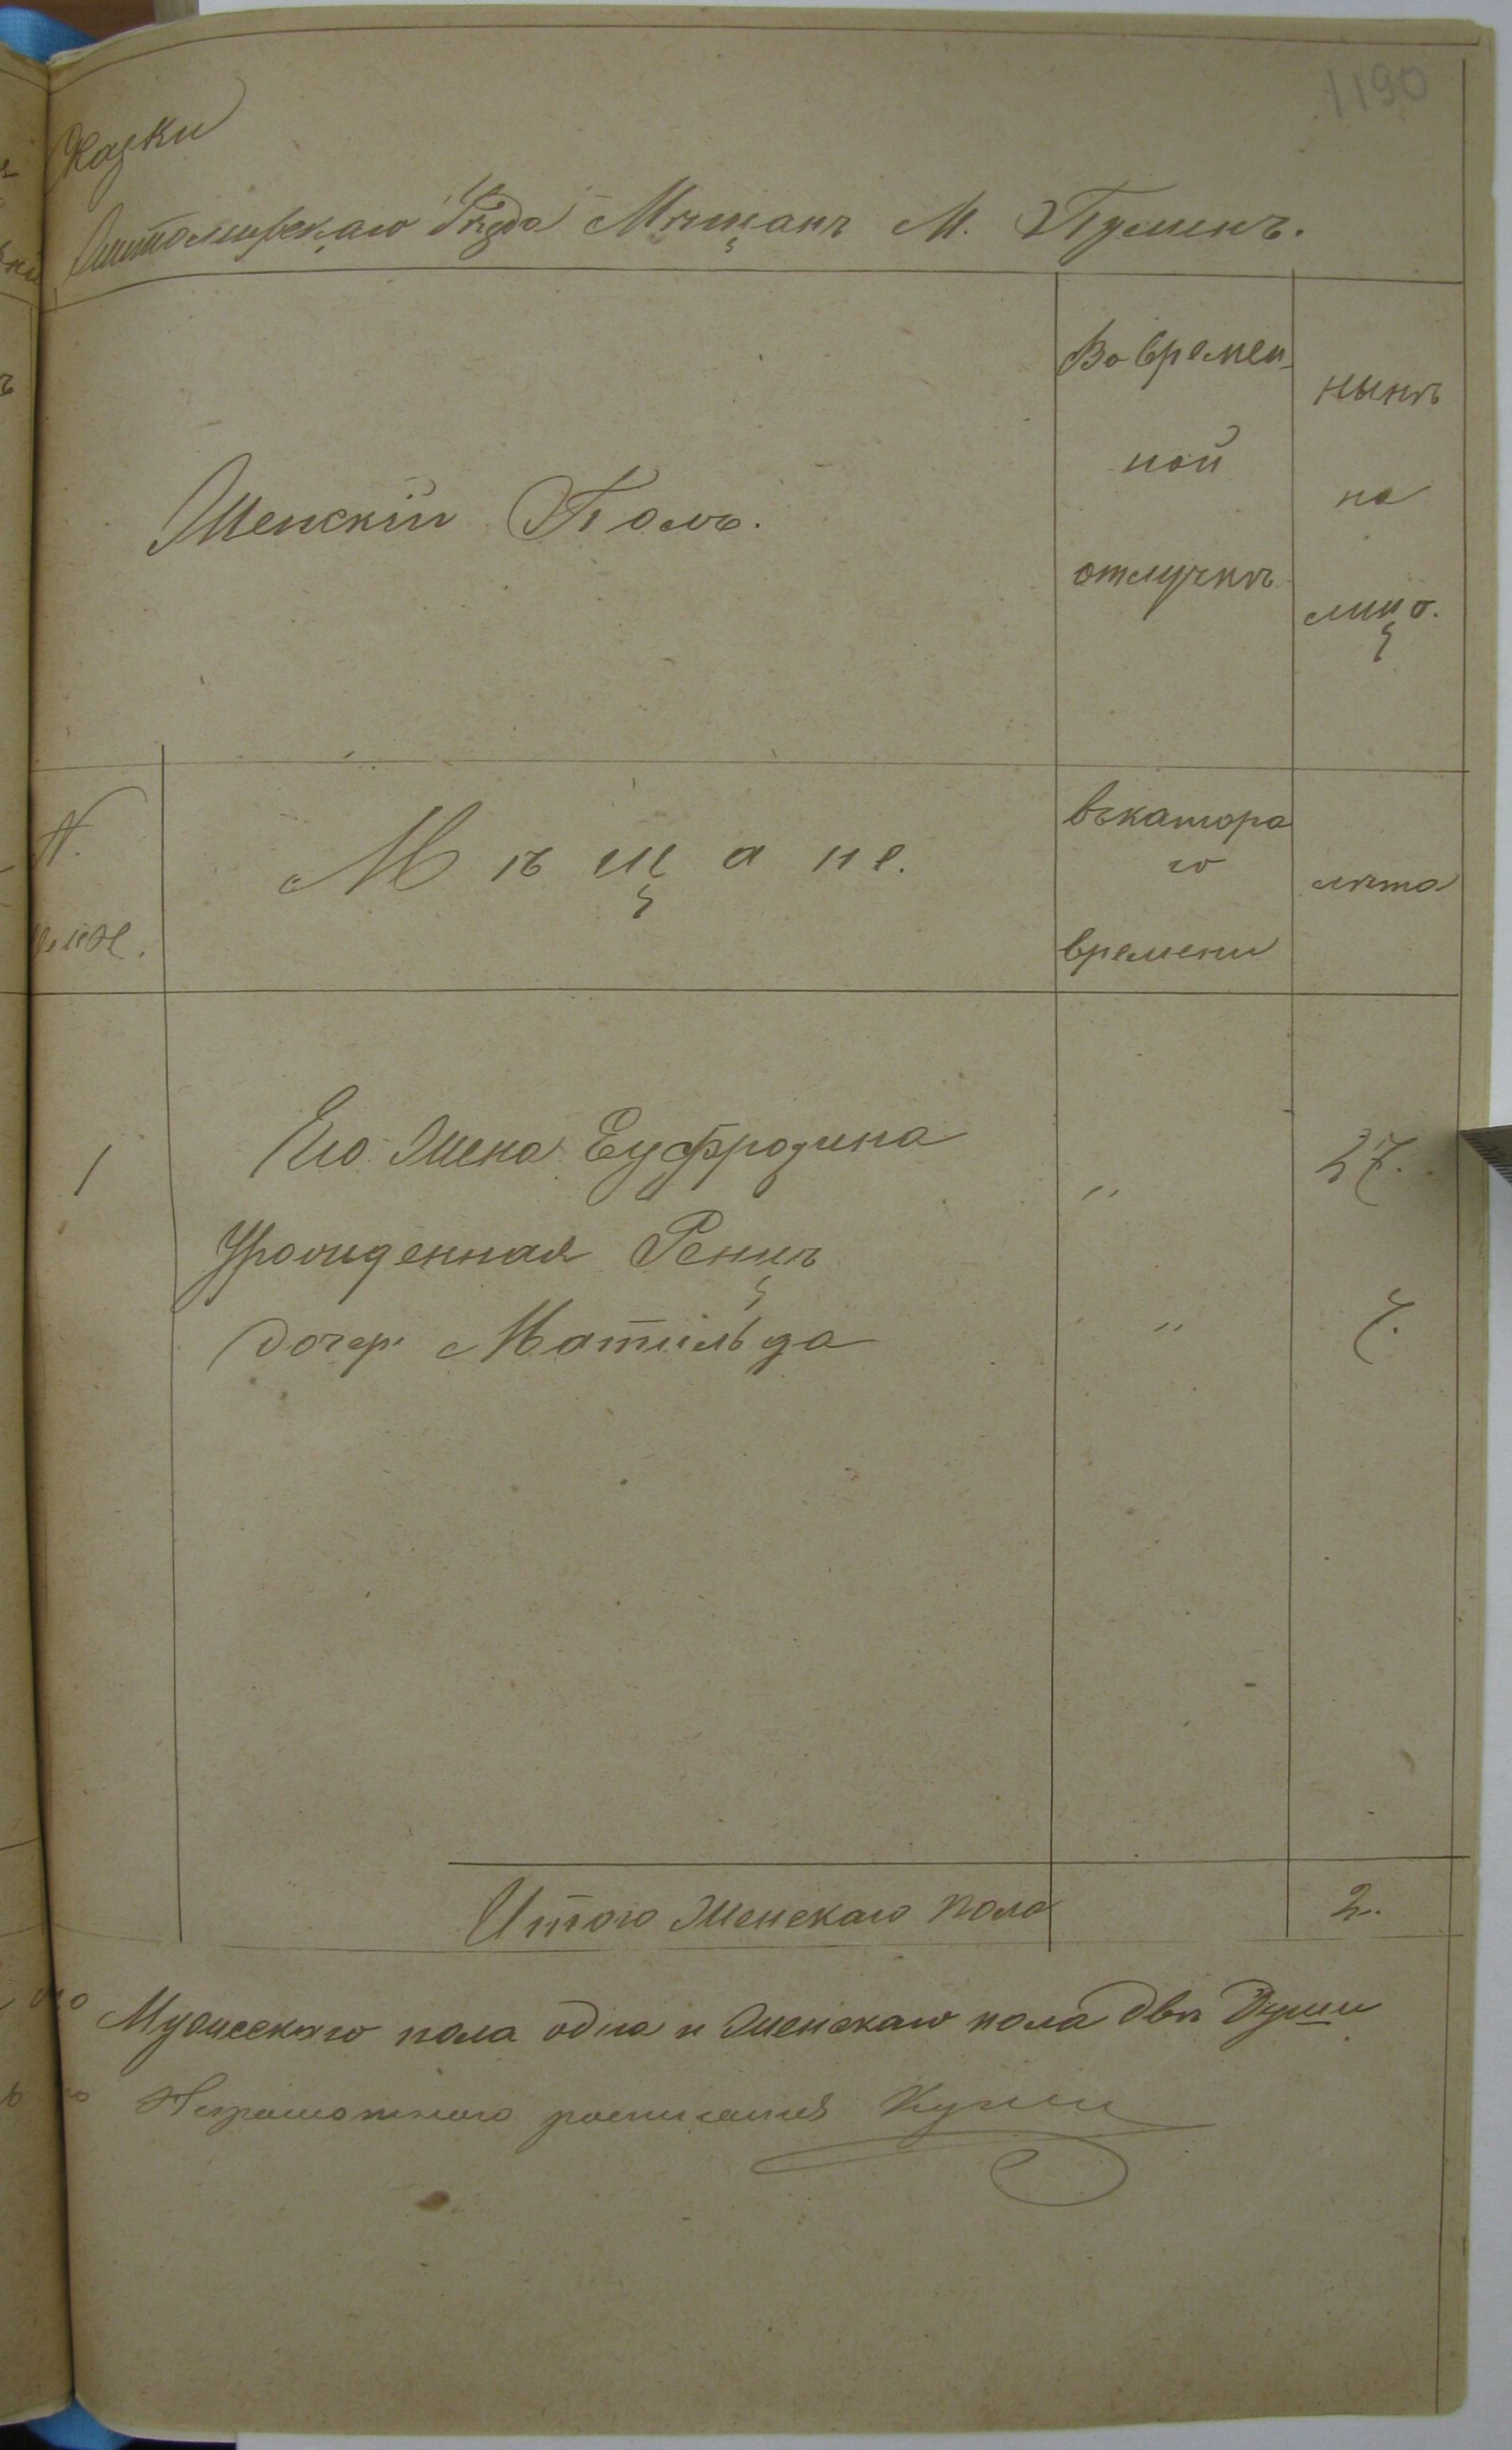 1190
сказки
Житомирскаго Уѣзда Мѣщанъ М. Пулинъ.
Женскій Полъ.
Во времен-
ной
отлучкѣ
нынѣ
на
лицо.
N.
Мѣщане.
въкатора
го
времени
лѣта
1
Его Жена Еуфрозина
„
27.
Урожденная Ренцъ
дочерь Матильда
„
7.
Итого Женскаго пола
2.
Мужескаго пола одна и Женскаго пола двѣ Души
Неграмотного росписался